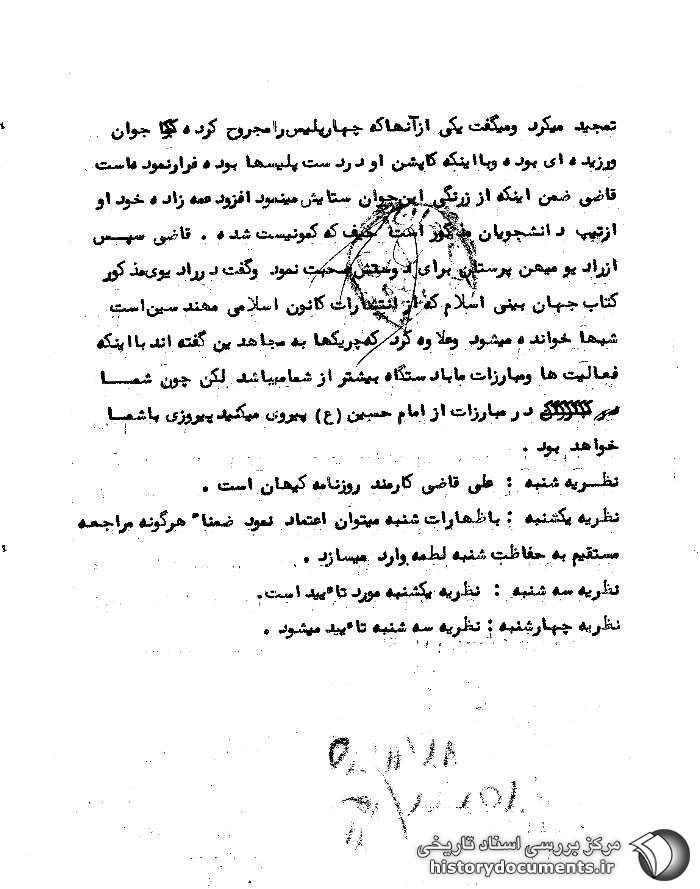 تمجید میکرد ومیگفت یکی ازآنهاکه چهارپلیس رامجروح کرده جوان
ورزیده ای بوده وبااینکه کاپشن او دردست پلیسها بوده فرارنموده‌است
قاضی ضمن اینکه از زرنگی این‌جوان ستایش مینمود افزود عمه زاده خود او
ازتیپ دانشجویان مذکور است حیف که کمونیست شده . قاضی سپس
ازرادیو میهن پرستان برای دوستش صحبت نمود وگفت دررادیوی‌مذکور
کتاب جهان بینی اسلام که از انتشارات کانون اسلامی مهندسین‌است
شبها خوانده میشود وعلاوه کرد که‌چریکها به مجاهدین گفته اند بااینکه
فعالیت ها ومبارزات ما بادستگاه بیشتر از شمامیباشد لکن چون شمـــا
در مبارزات از امام حسین (ع) پیروی میکنید پیروزی باشمـا
خواهد بود .
نظـریه شنبه : علی قاضی کارمند روزنامه کیهان است .
نظریه یکشنبه : باظهارات شنبه میتوان اعتماد نمود ضمناً هرگونه مراجعه
مستقیم به حفاظت شنبه لطمه وارد میسازد .
نظریه سه شنبه : نظریه یکشنبه مورد تاءیید است.
نظریه چهارشنبه : نظریه سه شنبه تاءیید میشود .
مرکز بررسی اسناد تاریخی
historydocuments.ir